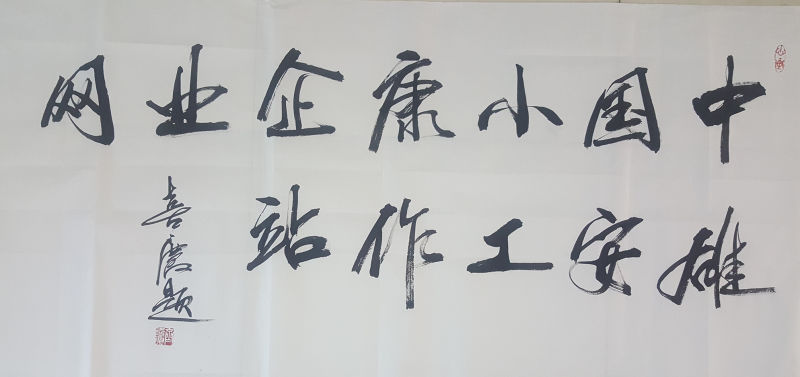 中国小康企业网
雄安工作站
喜庆题